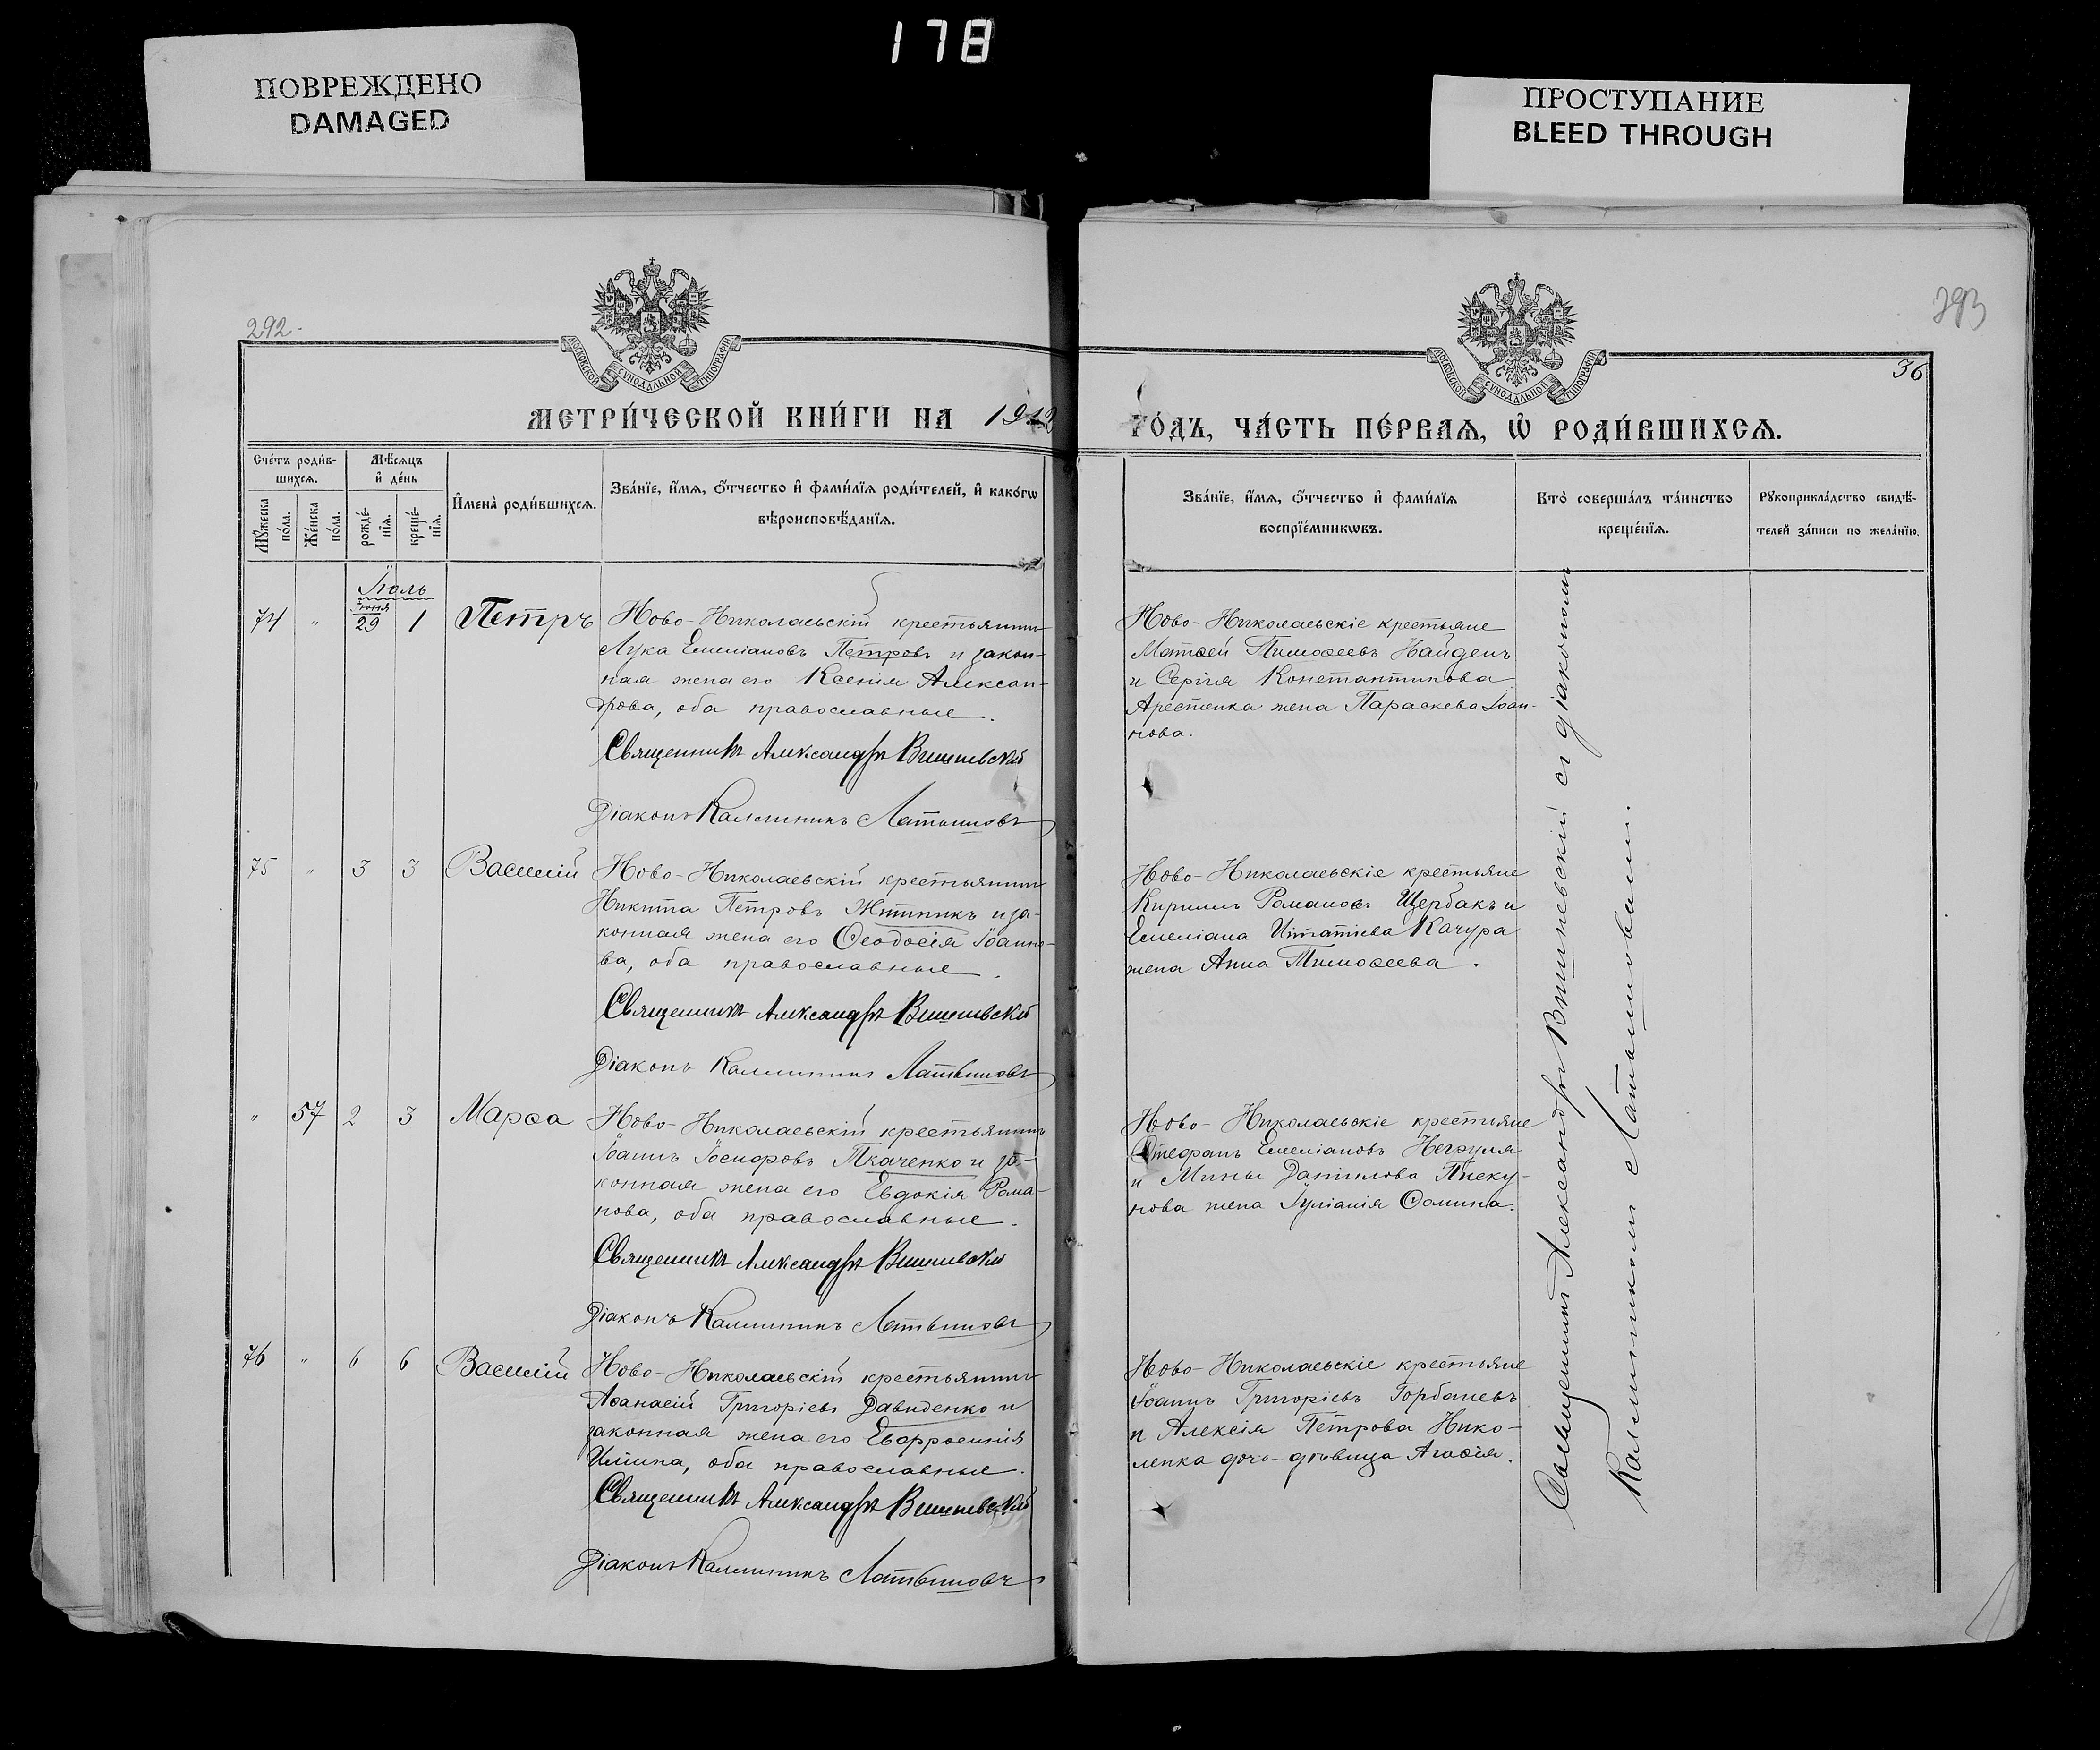 178
ПОВРЕЖДЕНО
DAMAGED
ПРОСТУПАНИЕ
BLEED THROUGH
292.
293
36
МОСКОВСКОЙ СѴНОДАЛЬНОЙ ТИПОГРАФІИ
МОСКОВСКОЙ СѴНОДАЛЬНОЙ ТИПОГРАФІИ
МЕТРИ́ЧЕСКОЙ КНИ́ГИ НА 1912
ГО́ДЪ, ЧА́СТЬ ПЕ́РВАѦ, Ѡ҆ РОДИ́ВШИХСѦ.
Сче́тъ роди́в-
шихсѧ.
Мꙋ́жеска по́ла.
Же́нска по́ла.
Мѣ́сѧцъ
и҆ де́нь
рожде́-нїѧ.
креще́-нїѧ.
И҆мена̀ роди́вшихсѧ.
Зва́нїе, и҆́мѧ, ѻ҆́тчество и҆ фами́лїѧ роди́телей, и҆ како́гѡ
вѣроисповѣ́данїѧ.
Зва́нїе, и҆́мѧ, ѻ҆́тчество и҆ фами́лїѧ
воспрїе́мникѡвъ.
Кто̀ соверша́лъ та́инство
креще́нїѧ.
Рꙋкоприкла́дство свидѣ́-
телей за́писи по жела́нїю.
Іюль
74 " Іюня 29 1 Петръ
Ново-Николаевскій крестьянинъ
Лука Емеліановъ Петровъ и закон-
ная жена его Ксенія Алексан-
дрова, оба православные.
Священникъ Александръ Вишневскій
Діаконъ Каллиникъ Латвиновъ
Ново-Николаевскіе крестьяне
Матѳей Тимоѳеевъ Найденъ
и Сергія Константинова
Арестенка жена Параскева Іоан-
нова.
75 " 3 3 Василій
Ново-Николаевскій крестьянинъ
Никита Петровъ Житникъ и за-
конная жена его Ѳеодосія Іоанно-
ва, оба православные.
Священникъ Александръ Вишневскій
Діаконъ Каллиникъ Латвиновъ
Ново-Николаевскіе крестьяне
Кириллъ Романовъ Щербакъ и
Емеліана Игнатіева Качура
жена Анна Тимоѳеева.
" 57 2 3 Марѳа
Ново-Николаевскій крестьянинъ
Іоаннъ Ісидоровъ Ткаченко и за-
конная жена его Евдокія Рома-
нова, оба православные.
Священникъ Александръ Вишневскій
Діаконъ Каллиникъ Латвиновъ
Ново-Николаевскіе крестьяне
Стефанъ Емеліановъ Негруля
и Мины Даніилова Писку-
нова жена Іуліанія Ѳомина.
76 " 6 6 Василій
Ново-Николаевскій крестьянинъ
Аѳанасій Григоріевъ Давиденко и
законная жена его Евфросинія
Иліина, оба православные.
Священникъ Александръ Вишневскій
Діаконъ Каллиникъ Латвиновъ
Ново-Николаевскіе крестьяне
Іоаннъ Григоріевъ Горбачевъ
и Алексія Петрова Нико-
ленка дочь-дѣвица Агаѳія.
Священникъ Александръ Вишневскій съ діакономъ
Каллиникомъ Латвиновымъ.